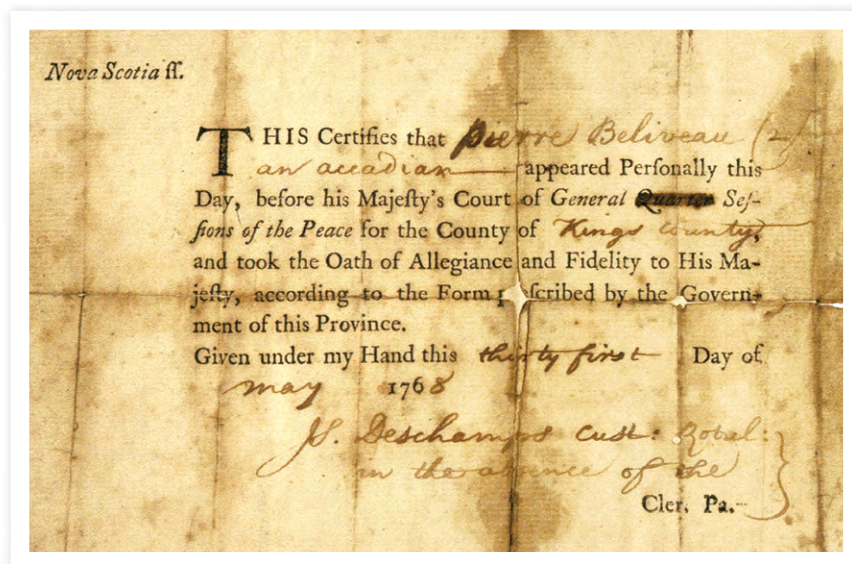 Nova Scotia ſſ.
THIS Certifies that pierre Beliveau (2)
an accadian appeared Perſonally this
Day, before his Majeſty's Court of General Quarter Seſ-
ſions of the Peace for the County of Kings County,
and took the Oath of Allegiance and Fidelity to His Ma-
jeſty, according to the Form p ſcribed by the Govern-
ment of this Province.
Given under my Hand this thirty first Day of
may 1768
JS. Deschamps Cust: Rotul:
in the absence of the
Cler. Pa.